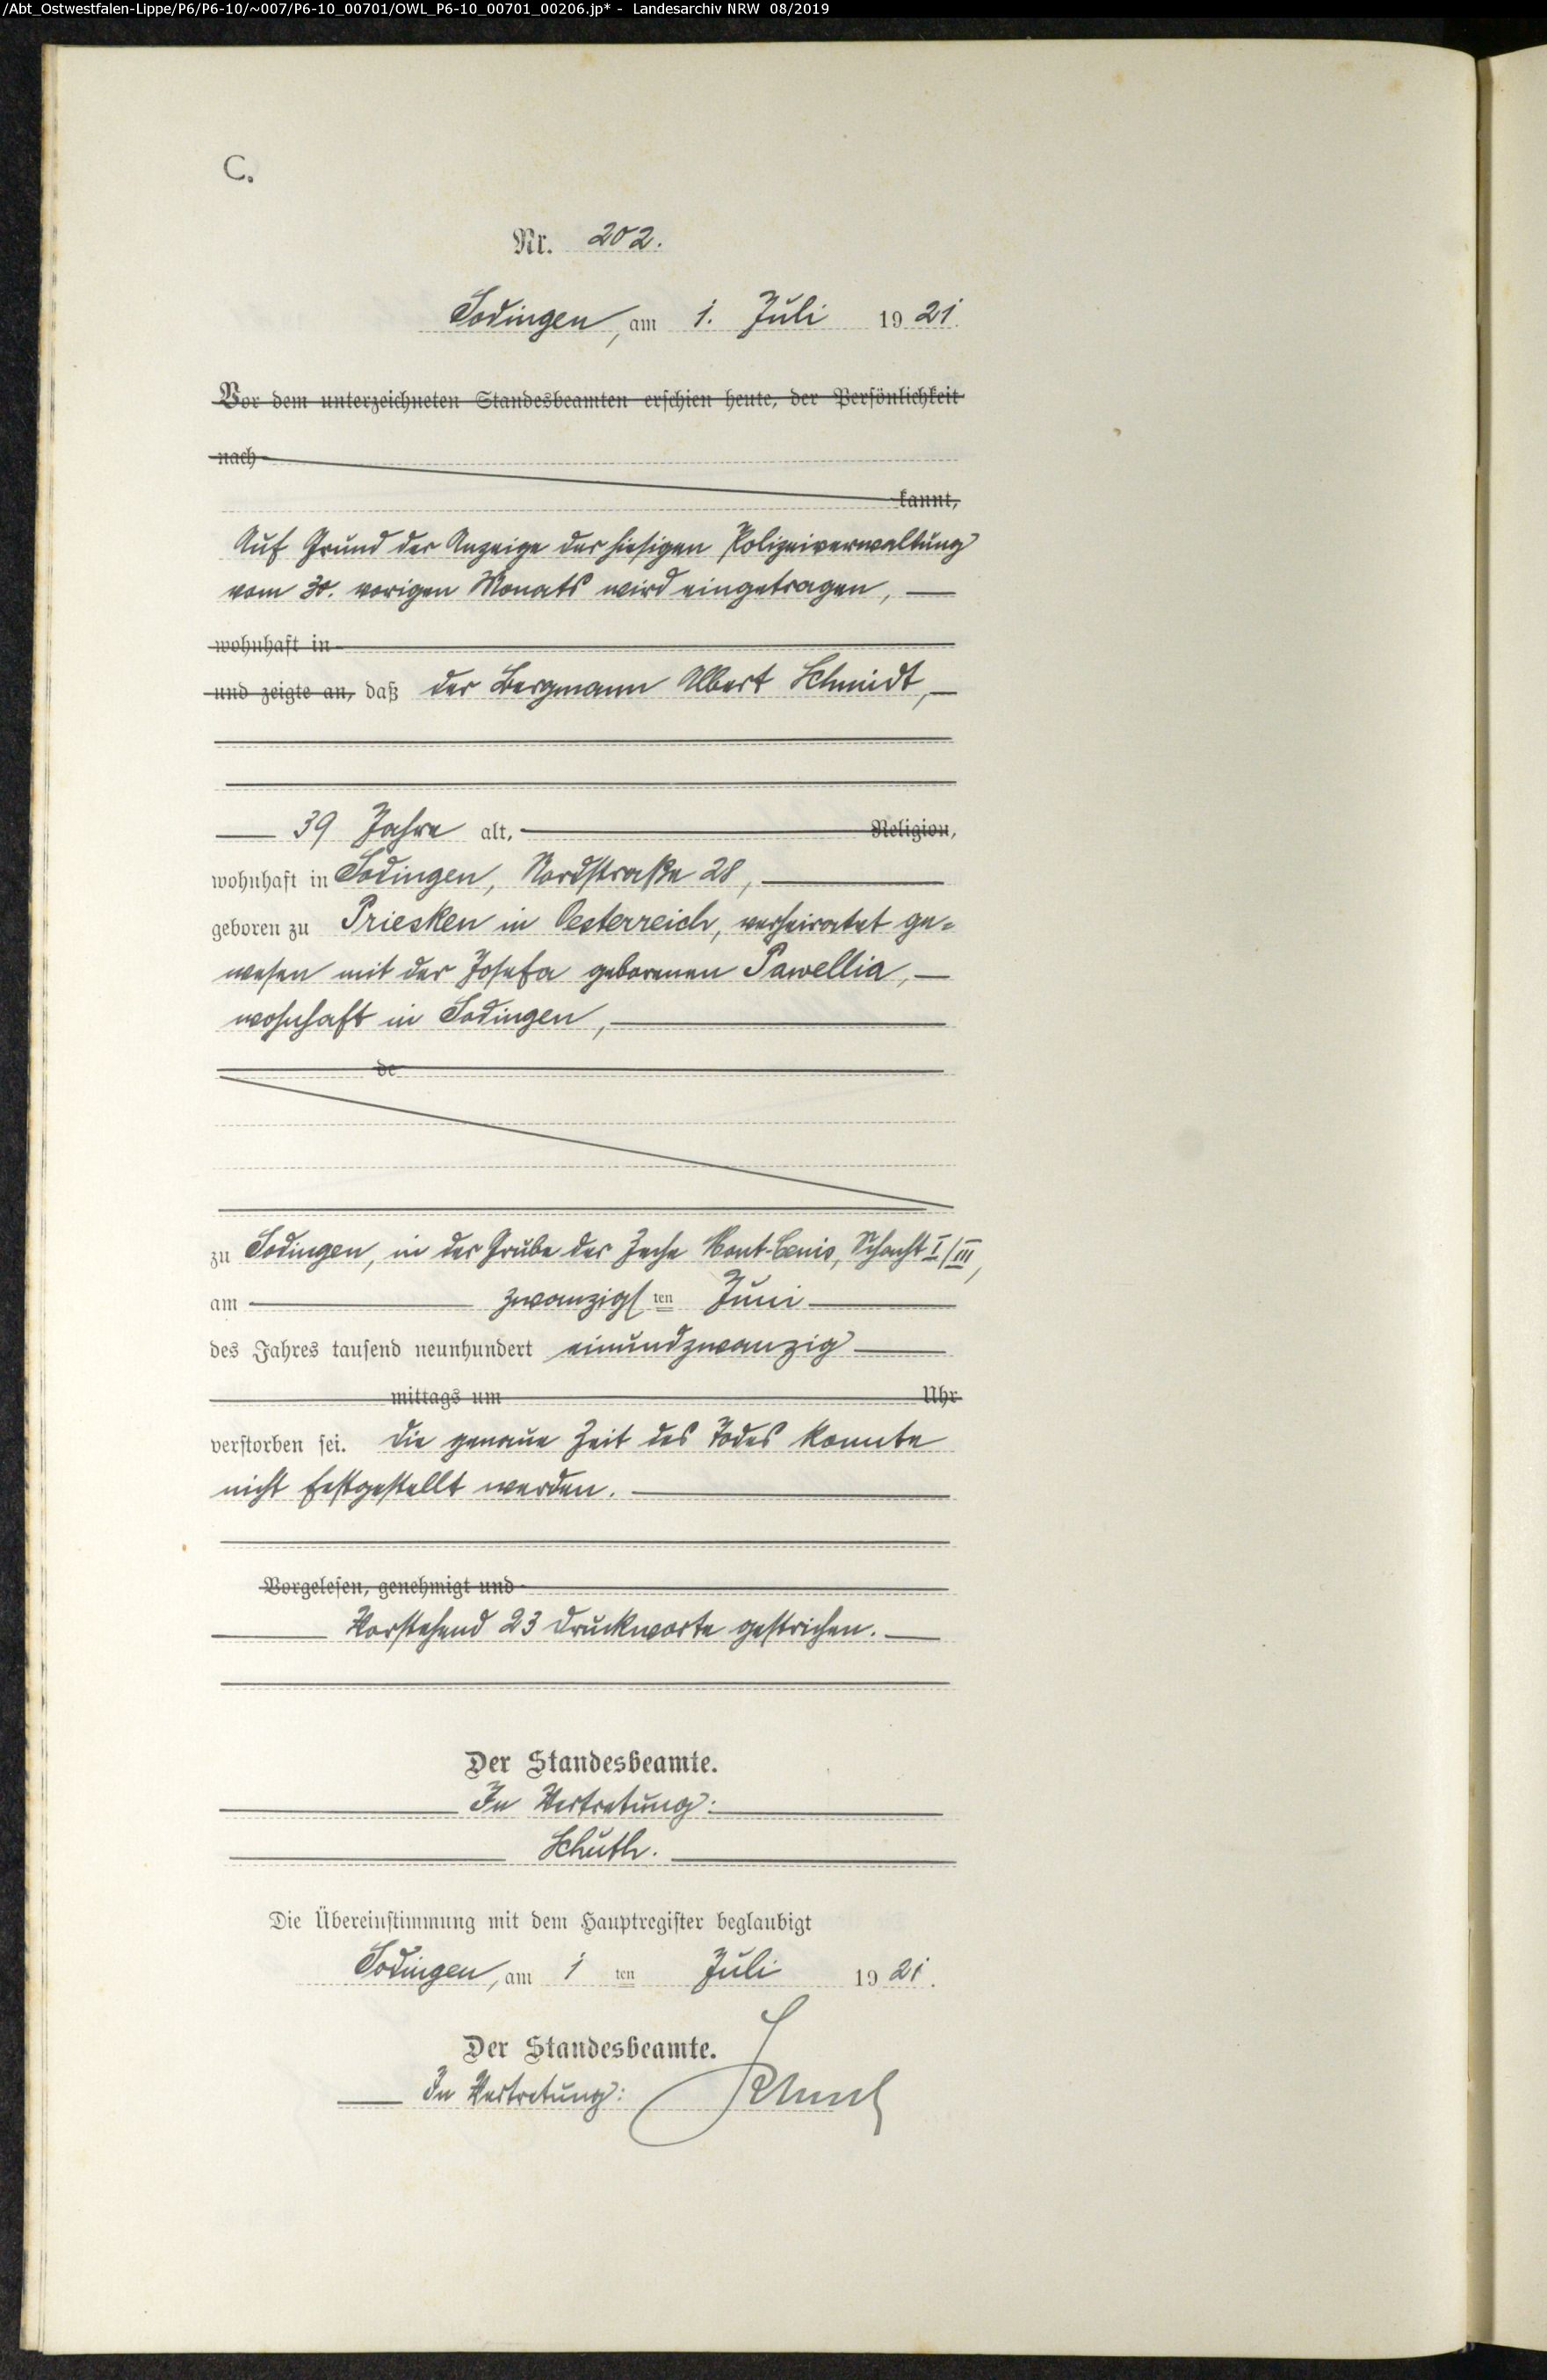 /Abt_Ostwestfalen-Lippe/P6/P6-10/~007/P6-10_00701/OWL_P6-10_00701_00206.jp* - Landesarchiv NRW 08/2019
C.
Nr. 202.
Sodingen, am 1. Juli 1921.
Vor dem unterzeichneten Standesbeamten erschien heute, der Persönlichkeit
nach
kannt,
Auf Grund der Anzeige der hiesigen Polizeiverwaltung
vom 30. vorigen Monats wird eingetragen,
wohnhaft in
und zeigte an, daß der Bergmann Albert Schmidt,
39 Jahre alt, Religion,
wohnhaft in Sodingen, Nordstraße 28,
geboren zu Priesken in Oesterreich, verheiratet ge=
wesen mit der Josefa geborenen Pawellia,
wohnhaft in Sodingen,
de
zu Sodingen, in der Grube der Zeche Mont-Cenis, Schacht I/III,
am zwanzigsten Juni
des Jahres tausend neunhundert einundzwanzig
mittags um Uhr
verstorben sei. Die genaue Zeit des Todes konnte
nicht festgestellt werden.
Vorgelesen, genehmigt und
Vorstehend 23 Druckworte gestrichen.
Der Standesbeamte.
In Vertretung:
Schuth.
Die Übereinstimmung mit dem Hauptregister beglaubigt
Sodingen, am 1 ten Juli 1921.
Der Standesbeamte.
In Vertretung: